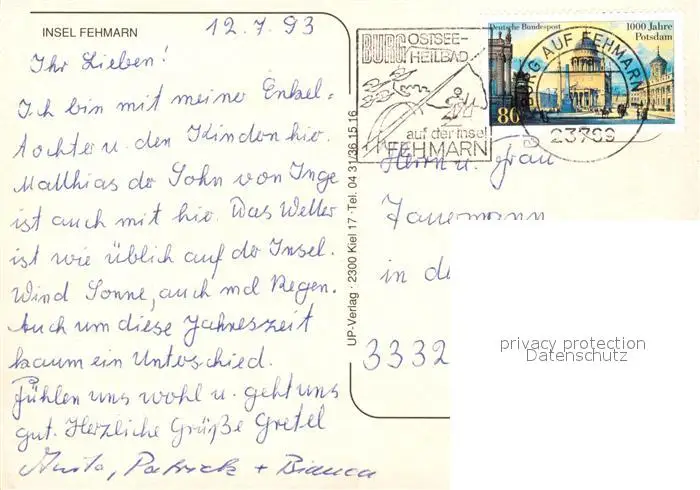 INSEL FEHMARN
12.7.93
Ihr Lieben!
Ich bin mit meiner Enkel=
tochter u. den Kindern hier.
Matthias der Sohn von Inge
ist auch mit hier. Das Wetter
ist wie üblich auf der Insel.
Wind Sonne, auch mal Regen.
Auch um diese Jahreszeit
kaum ein Unterschied.
Fühlen uns wohl u. geht uns
gut. Herzliche Grüße Gretel
Anita, Patrick + Bianca
UP-Verlag · 2300 Kiel 17 · Tel. 04 31/36 15 16
BURG OSTSEE-
HEILBAD
auf der Insel
FEHMARN
Deutsche Bundespost
1000 Jahre
Potsdam
80
BURG AUF FEHMARN
23769
Herrn u. Frau
in d
3332
privacy protection
Datenschutz